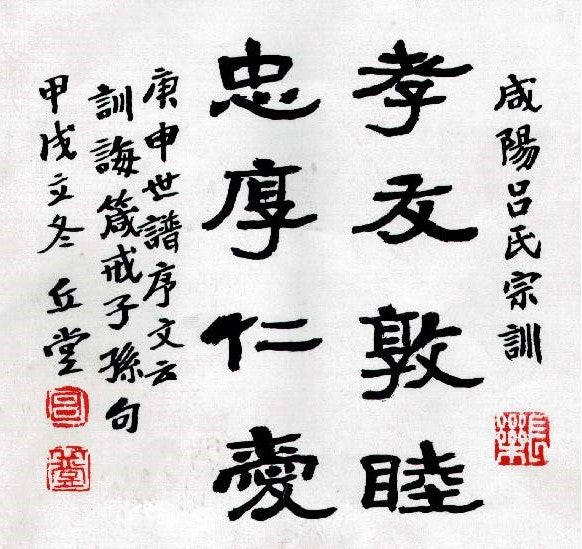 咸陽吕氏宗訓
孝友敦睦
忠厚仁愛
庚申世譜序文云
訓誨箴戒子孫句
甲戌立冬 丘堂